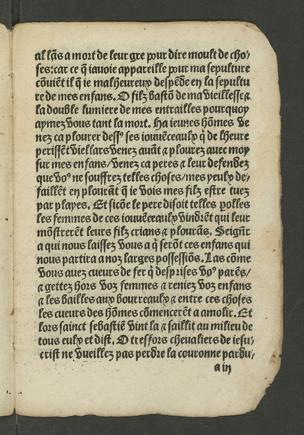 al lās a mort de leur gre pour dire moult de cho-
ses: car ce q̄ iauoie appareille pour ma sepulture
cōuiēt il q̄ ie malheureux despēde en la sepultu
re de mes enfans. O filz bastō de ma vieillesse ⁊
la double lumiere de mes entrailles pourquoy
aymez vous tant la mort. Ha ieunes hōmes ve
nez ca plourer dessꝰ ses iouuēceaulx q̄ de lheure
perissēt vieillars venez auāt ⁊ plourez auec moy
sur mes enfans/venez ca peres ⁊ leur defendez
que voꝰ ne souffrez telles choses/mes yeulx de-
faillēt en plourāt q̄ ie vois mes filz estre tuez
par playes. Et sicōe le pere disoit telles polles
les femmes de ces iouuēceaulx vindrēt qui leur
mōstrerēt leurs filz crians ⁊ plourās. Seignr̄
a qui nous laissez vous a q̄ serōt ces enfans qui
nous partira a noz larges possessiōs. Las cōme
vous auez cueurs de fer q̄ desprises voꝰ parēs/
⁊ gettez hors voz femmes ⁊ reniez voz enfans
⁊ les bailles aux bourreaulx ⁊ entre ces choses
les cueurs des hōmes cōmencerēt a amolir. Et
lors sainct sebastiē vint la ⁊ saillit au milieu de
tous eulx et dist. O tresfors cheualiers de iesu-
crist ne vueillez pas perdre la couronne pardu-
a iii